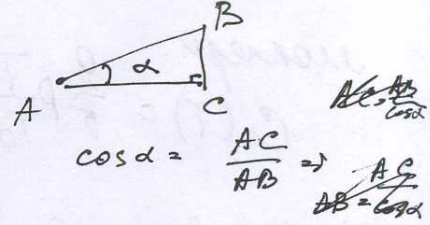 B
α
A
C
AC = AB/cosα
cosα = AC/AB ⇒
AB = AC/cosα